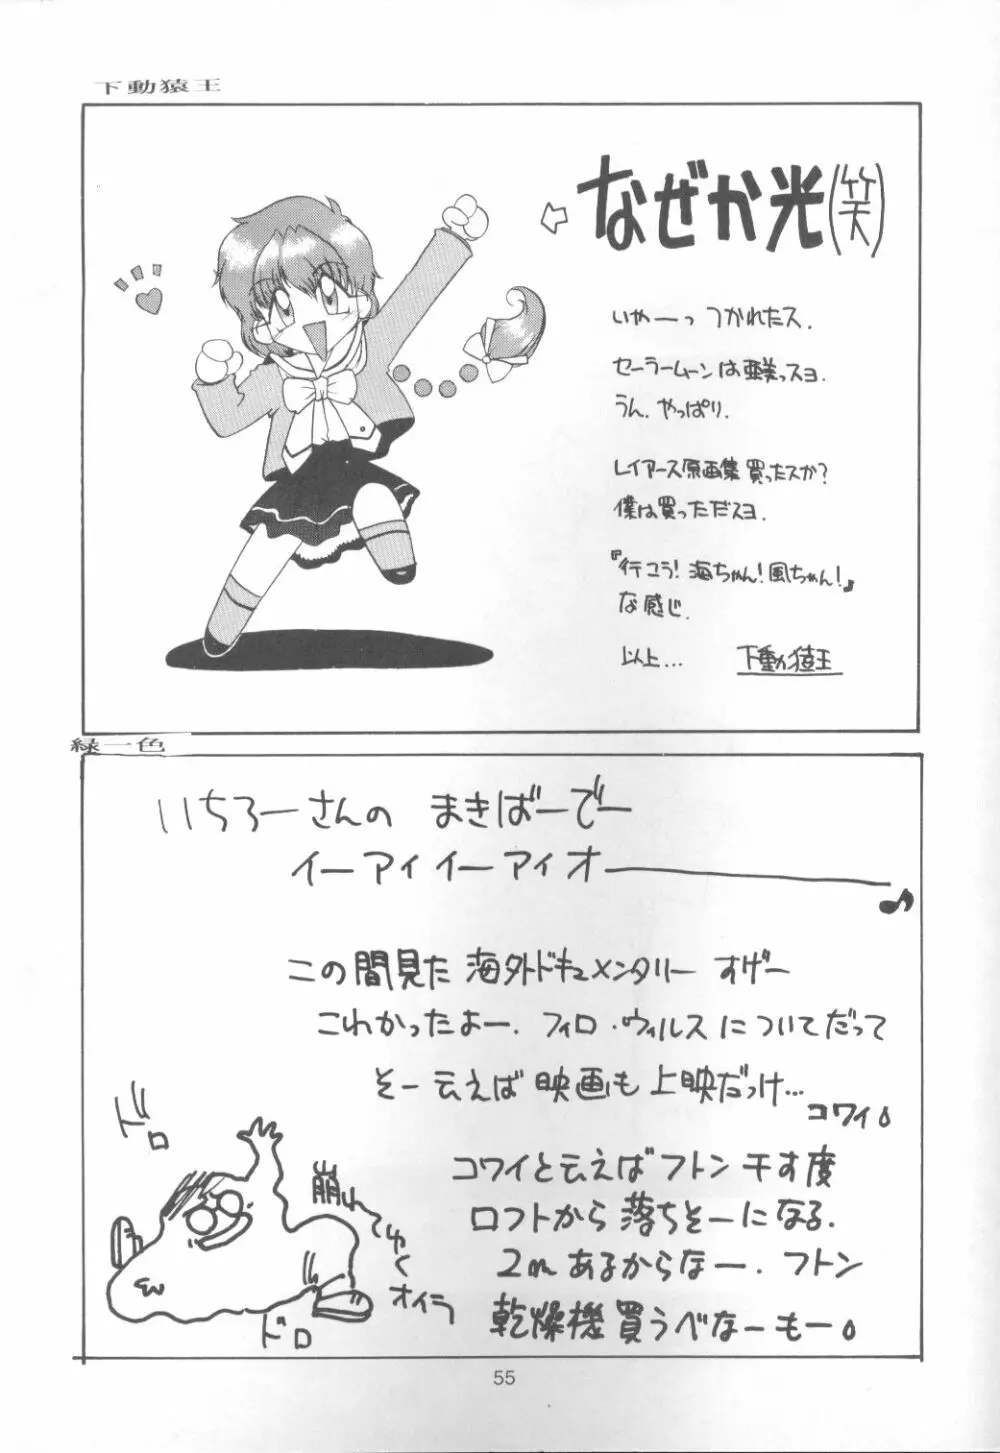 下動猿王
なぜか光(笑)
いやーっ つかれたス.
セーラームーンは亜美っスヨ.
うん. やっぱり.
レイアース原画集 買ったスか?
僕は買っただスヨ.
『行こう! 海ちゃん! 風ちゃん!』
な感じ.
以上... 下動猿王
緑一色
いちろーさんの まきばーでー
イーアイイーアイオー♪
この間見た 海外ドキュメンタリー すげー
これわかったよー. フィロ・ウィルスについてだって
そー云えば 映画も 上映だっけ...
コワイ。
コワイと云えば フトン 干す度
ロフトから 落ちそーになる.
2m あるからなー. フトン
乾燥機 買うべなーもー。
ドロ
崩れてゆく
オイラ
ドロ
55